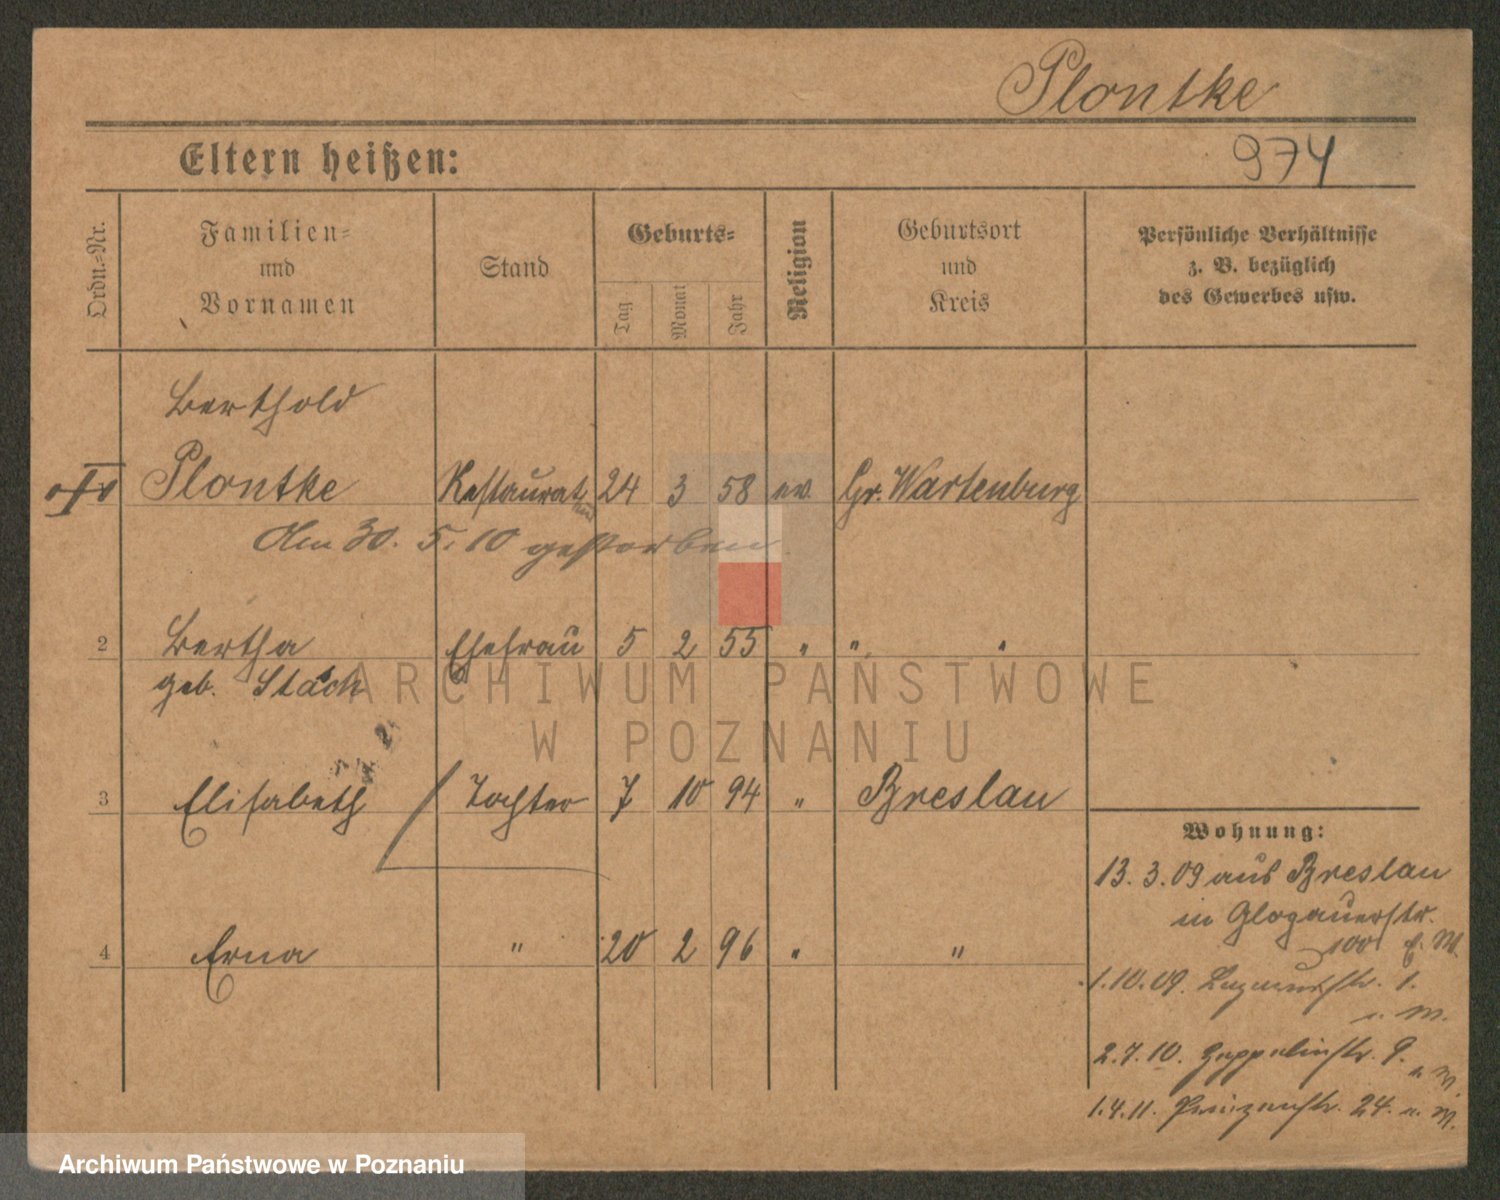 Plontke
Eltern heißen:
974
Ordn.-Nr.
Familien- und Vornamen
Stand
Geburts-
Tag
Monat
Jahr
Religion
Geburtsort und Kreis
Persönliche Verhältnisse
z. B. bezüglich
des Gewerbes usw.
Berthold
Plontke Restaurat 24 3 58 ev. Gr. Wartenburg
Am 30. 5. 10 gestorben
2 Bertha Ehefrau 5 2 55 " " "
geb. Stach
3 Elisabeth Tochter 7 10 94 " Breslau
4 Erna " 20 2 96 " "
Wohnung:
13. 3. 09 aus Breslau
in Glogauerstr.
100 E. M.
1. 10. 09. Lazarusstr. 1.
2. 7. 10. Zeppelinstr. 9.
1. 4. 11. Prinzenstr. 24.
ARCHIWUM PAŃSTWOWE
W POZNANIU
Archiwum Państwowe w Poznaniu